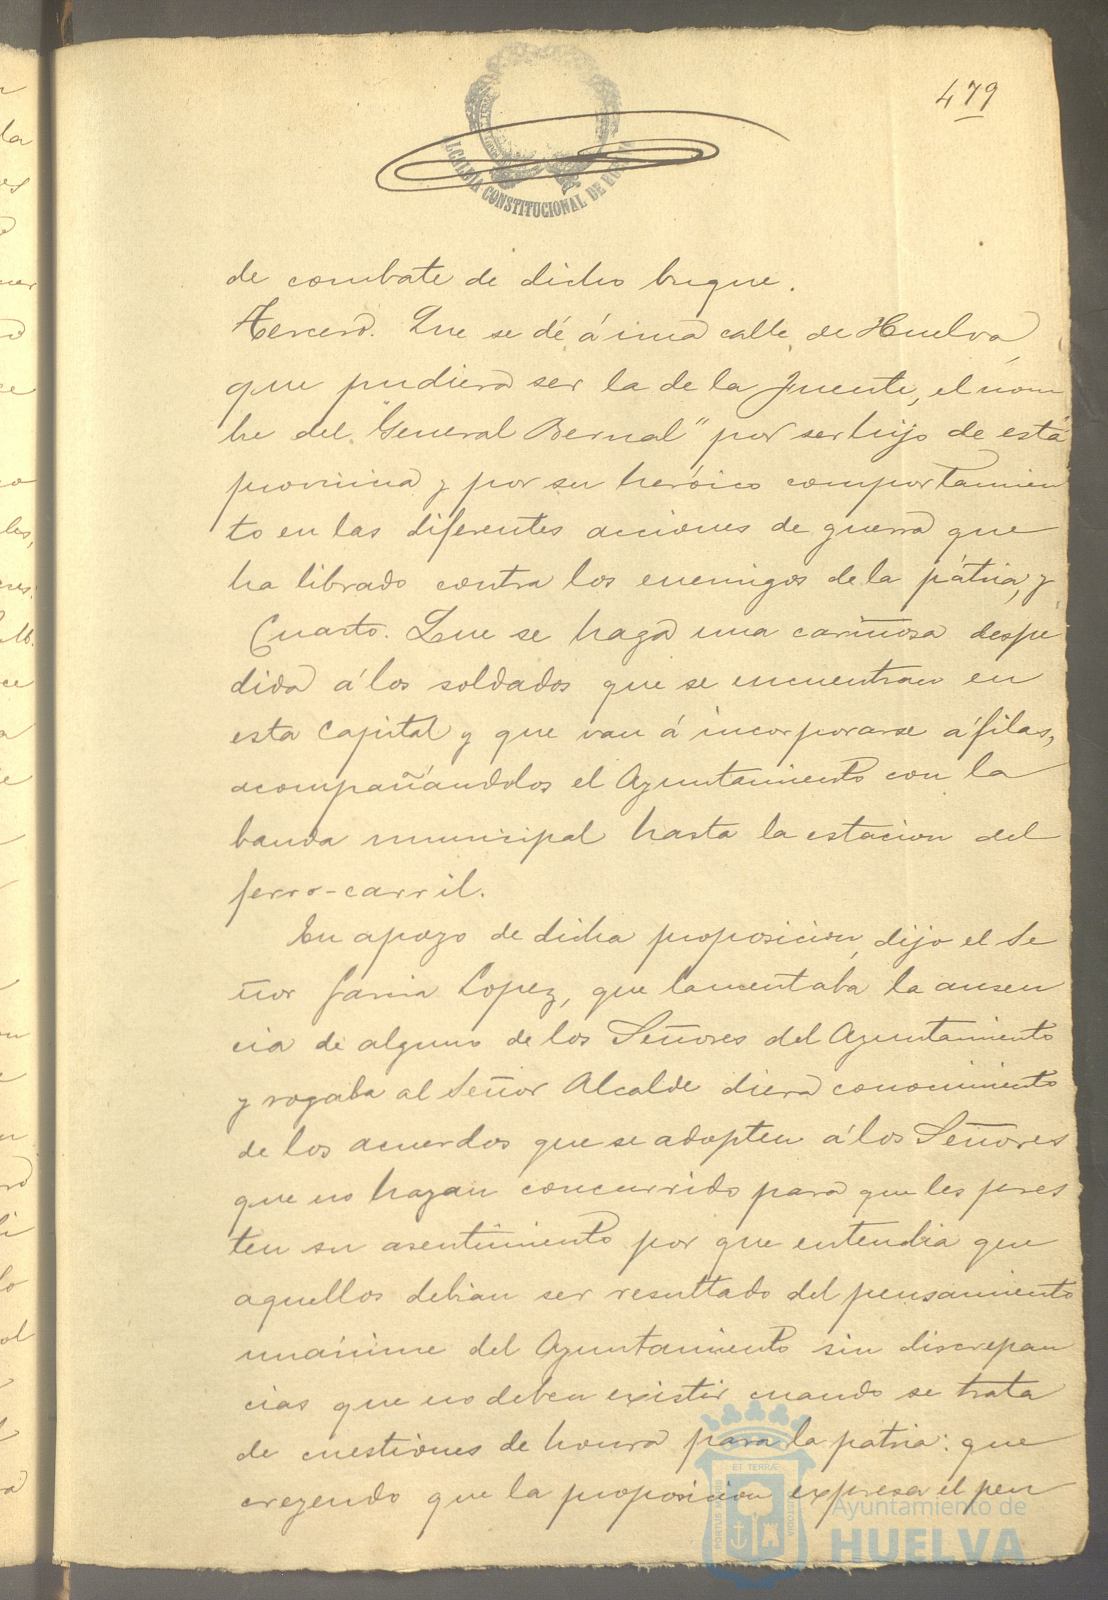 479
ALCALDIA CONSTITUCIONAL DE HUELVA
de combate de dicho buque.
Tercero. Que se dé á una calle de Huelva,
que pudiera ser la de la Fuente, el nom
bre del "General Bernal" por ser hijo de esta
provincia y por su heróico comportamien
to en las diferentes acciones de guerra que
ha librado contra los enemigos de la pátria, y
Cuarto. Que se haga una cariñosa despe
dida á los soldados que se encuentran en
esta Capital y que van á incorporarse á filas,
acompañándolos el Ayuntamiento con la
banda municipal hasta la estacion del
ferro-carril.
En apoyo de dicha proposicion, dijo el Se
ñor Garcia Lopez, que lamentaba la ausen
cia de alguno de los Señores del Ayuntamiento
y rogaba al Señor Alcalde diera conocimiento
de los acuerdos que se adopten á los Señores
que no hayan concurrido para que les pres
ten su asentimiento por que entendia que
aquellos debian ser resultado del pensamiento
unánime del Ayuntamiento sin discrepan
cias que no deben existir cuando se trata
de cuestiones de honra para la pátria: que
creyendo que la proposicion expresa el pen
PORTUS MARIS ET TERRÆ CUSTODIA
Ayuntamiento de
HUELVA